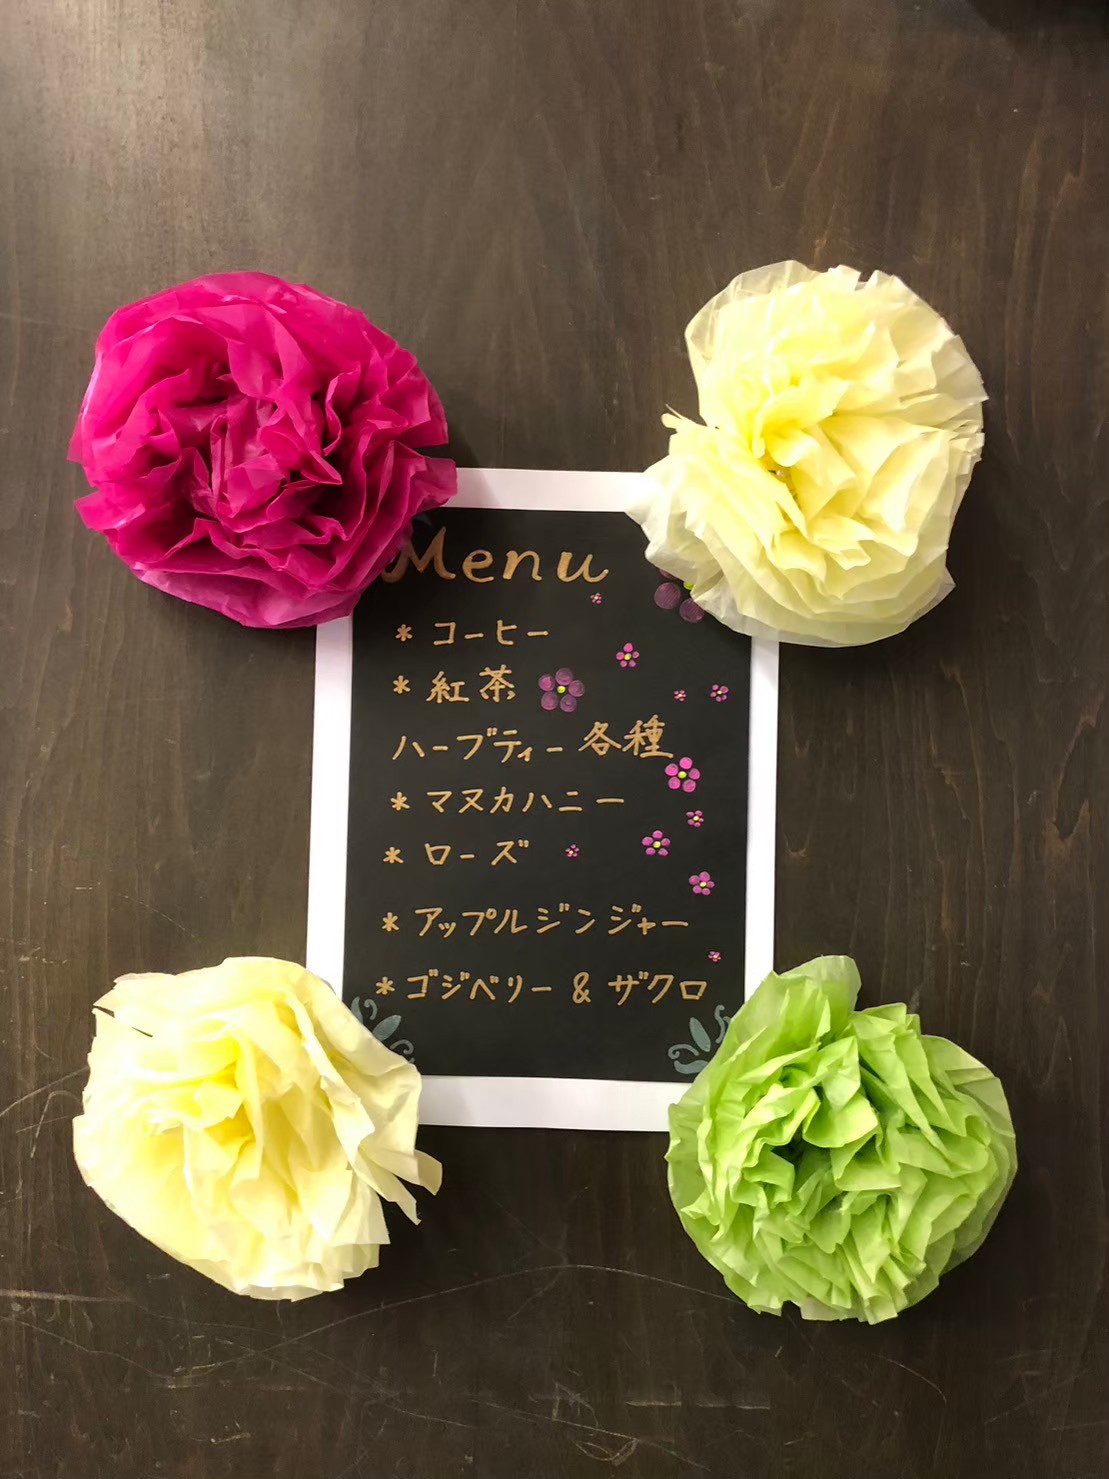 Menu
* コーヒー
* 紅茶
ハーブティー各種
* マヌカハニー
* ローズ
* アップルジンジャー
* ゴジベリー & ザクロ